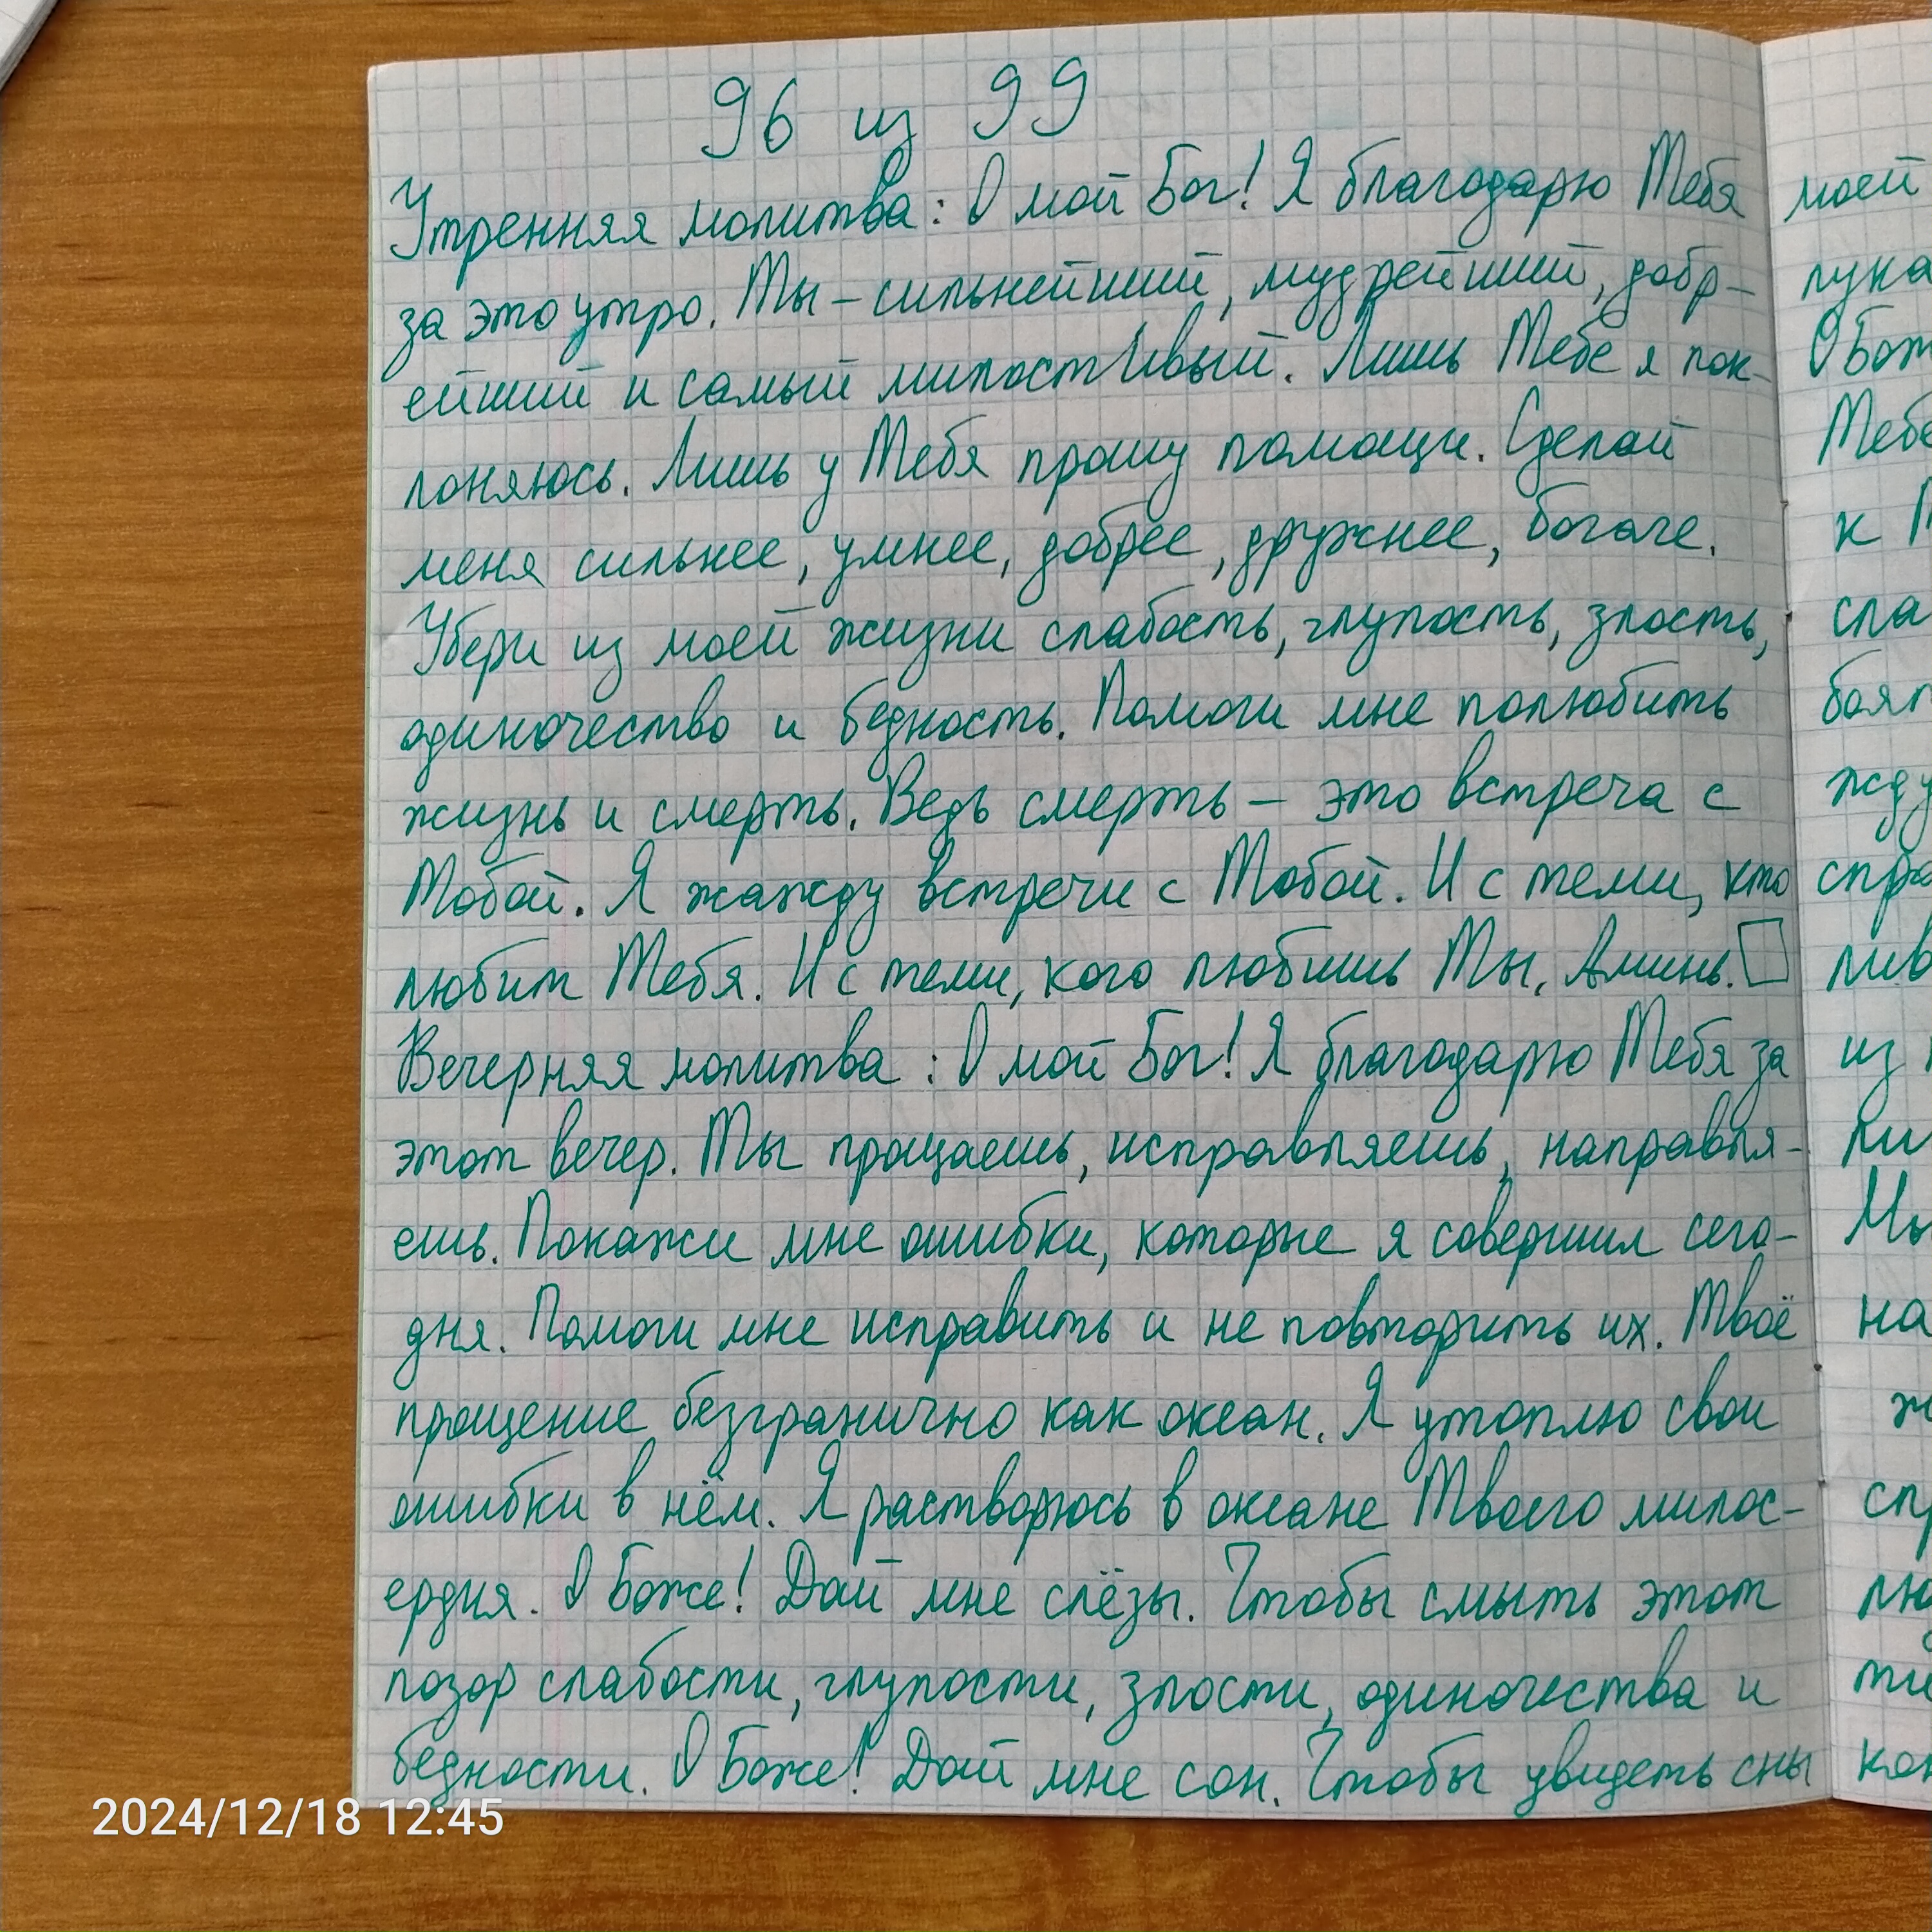 96 из 99
Утренняя молитва: О мой Бог! Я благодарю Тебя
за это утро. Ты – сильнейший, мудрейший, добр-
ейший и самый милостивый. Лишь Тебе я пок-
лоняюсь. Лишь у Тебя прошу помощи. Сделай
меня сильнее, умнее, добрее, дружнее, богаче.
Убери из моей жизни слабость, глупость, злость,
одиночество и бедность. Помоги мне полюбить
жизнь и смерть. Ведь смерть – это встреча с
Тобой. Я жажду встречи с Тобой. И с теми, кто
любит Тебя. И с теми, кого любишь Ты. Аминь.
Вечерняя молитва: О мой Бог! Я благодарю Тебя за
этот вечер. Ты прощаешь, исправляешь, направля-
ешь. Покажи мне ошибки, которые я совершил сего-
дня. Помоги мне исправить и не повторить их. Твоё
прощение безгранично как океан. Я утоплю свои
ошибки в нём. Я растворюсь в океане Твоего милос-
ердия. О Боже! Дай мне слёзы. Чтобы смыть этот
позор слабости, глупости, злости, одиночества и
бедности. О Боже! Дай мне сон. Чтобы увидеть сны
моей
из
на
2024/12/18 12:45